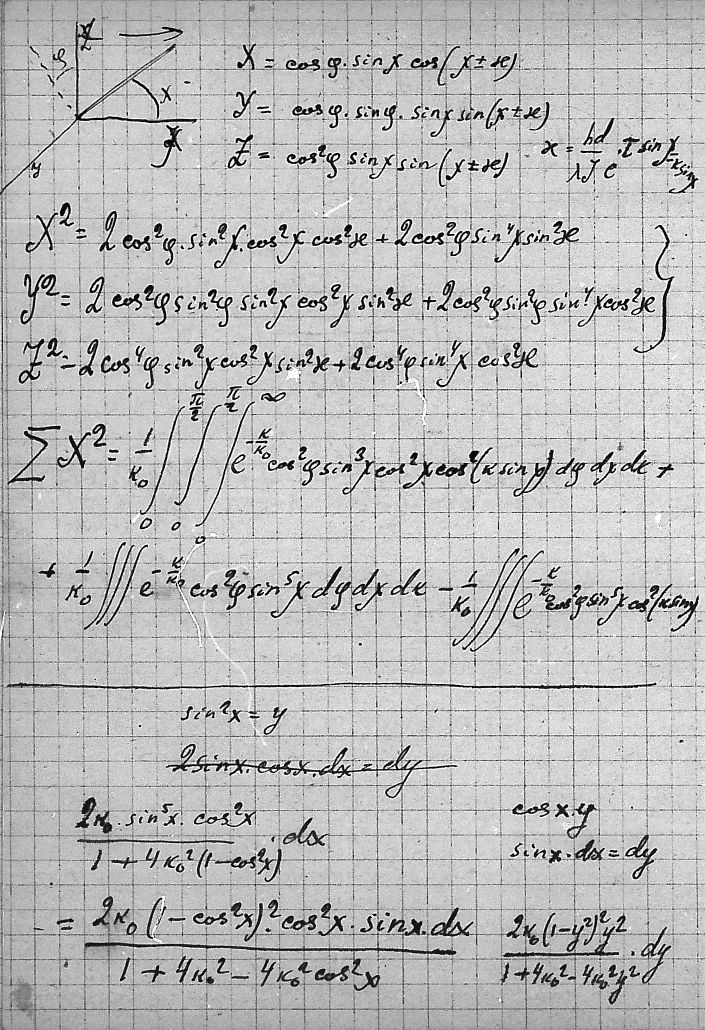 X = cos φ · sin χ cos(χ ± ϰ)
Y = cos φ · sin φ · sin χ sin(χ ± ϰ)
Z = cos²φ sin χ sin(χ ± ϰ)
X² = 2 cos²φ · sin²χ · cos²χ cos²ϰ + 2 cos²φ sin⁴χ sin²ϰ
Y² = 2 cos²φ sin²φ sin²χ cos²χ sin²ϰ + 2 cos²φ sin²φ sin⁴χ cos²ϰ
Z² = 2 cos⁴φ sin²χ cos²χ sin²ϰ + 2 cos⁴φ sin⁴χ cos²ϰ
∑X² = 1/κ₀ ∫₀^{π/2} ∫₀^{π/2} ∫₀^∞ e^{-κ/κ₀} cos²φ sin³χ cos²χ cos²(κ sin χ) dφ dχ dκ +
+ 1/κ₀ ∫∫∫ e^{-κ/κ₀} cos²φ sin⁵χ dφ dχ dκ - 1/κ₀ ∫∫∫ e^{-κ/κ₀} cos²φ sin⁵χ cos²(κ sin χ)
sin²x = y
2 sin x · cos x · dx = dy
2κ₀ · sin⁵x · cos²x / 1 + 4κ₀²(1 - cos²x) · dx
cos x · y
sin x · dx = dy
= 2κ₀(1 - cos²x)² · cos²x · sin x · dx / 1 + 4κ₀² - 4κ₀² cos²x
2κ₀(1 - y²)² y² / 1 + 4κ₀² - 4κ₀² y² · dy